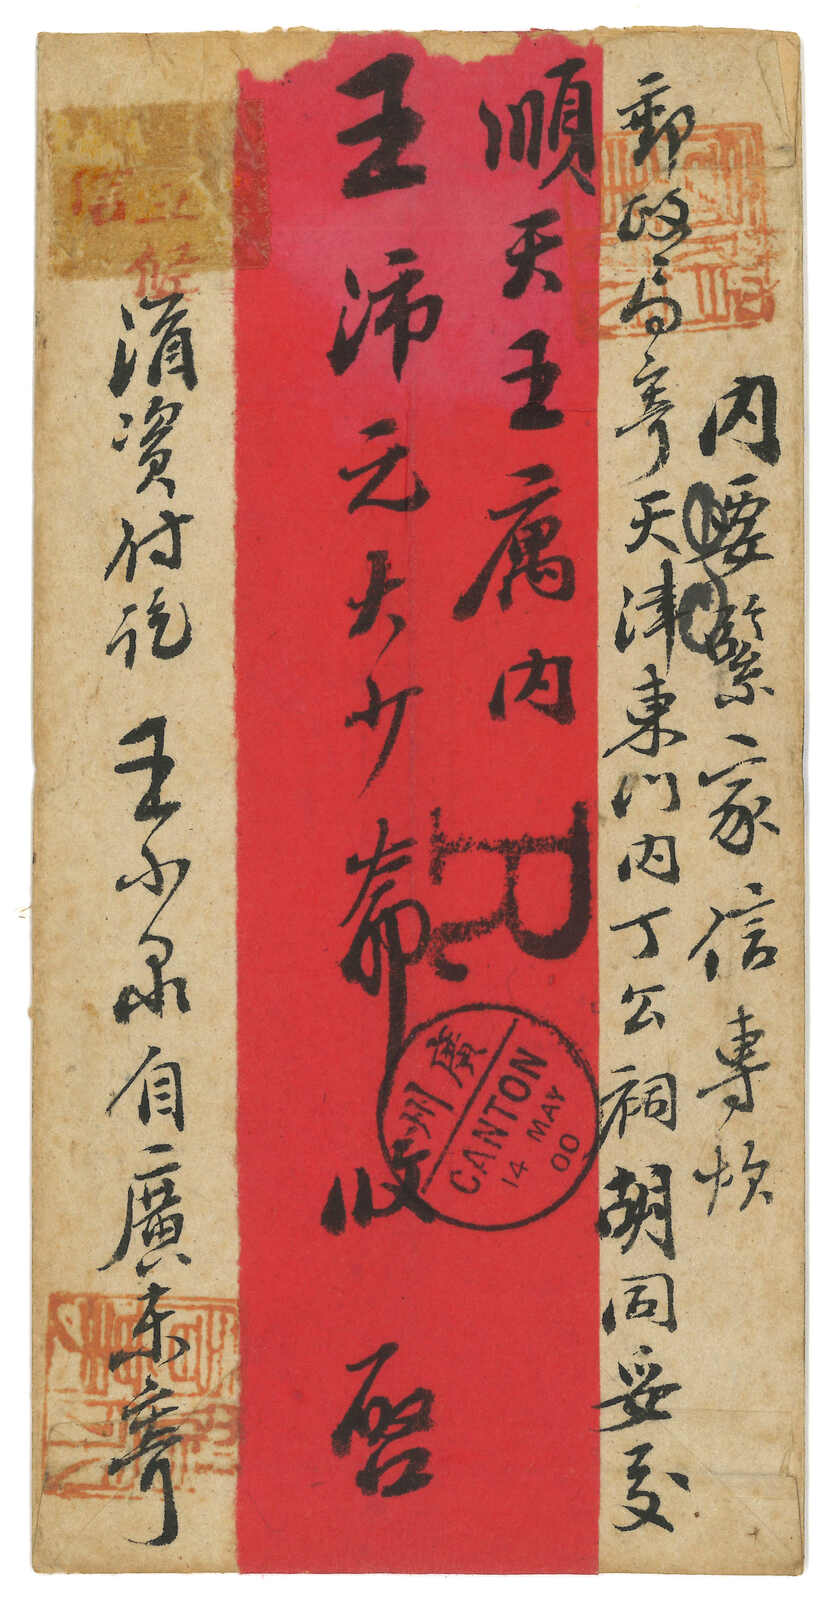 內要緊家信專
郵政局寄天津東門內丁公祠胡同妥交
順天王寓內
王沛元大少爺收啓
涓資付訖 王小泉自廣東寄
R
廣州
CANTON
14 MAY
00